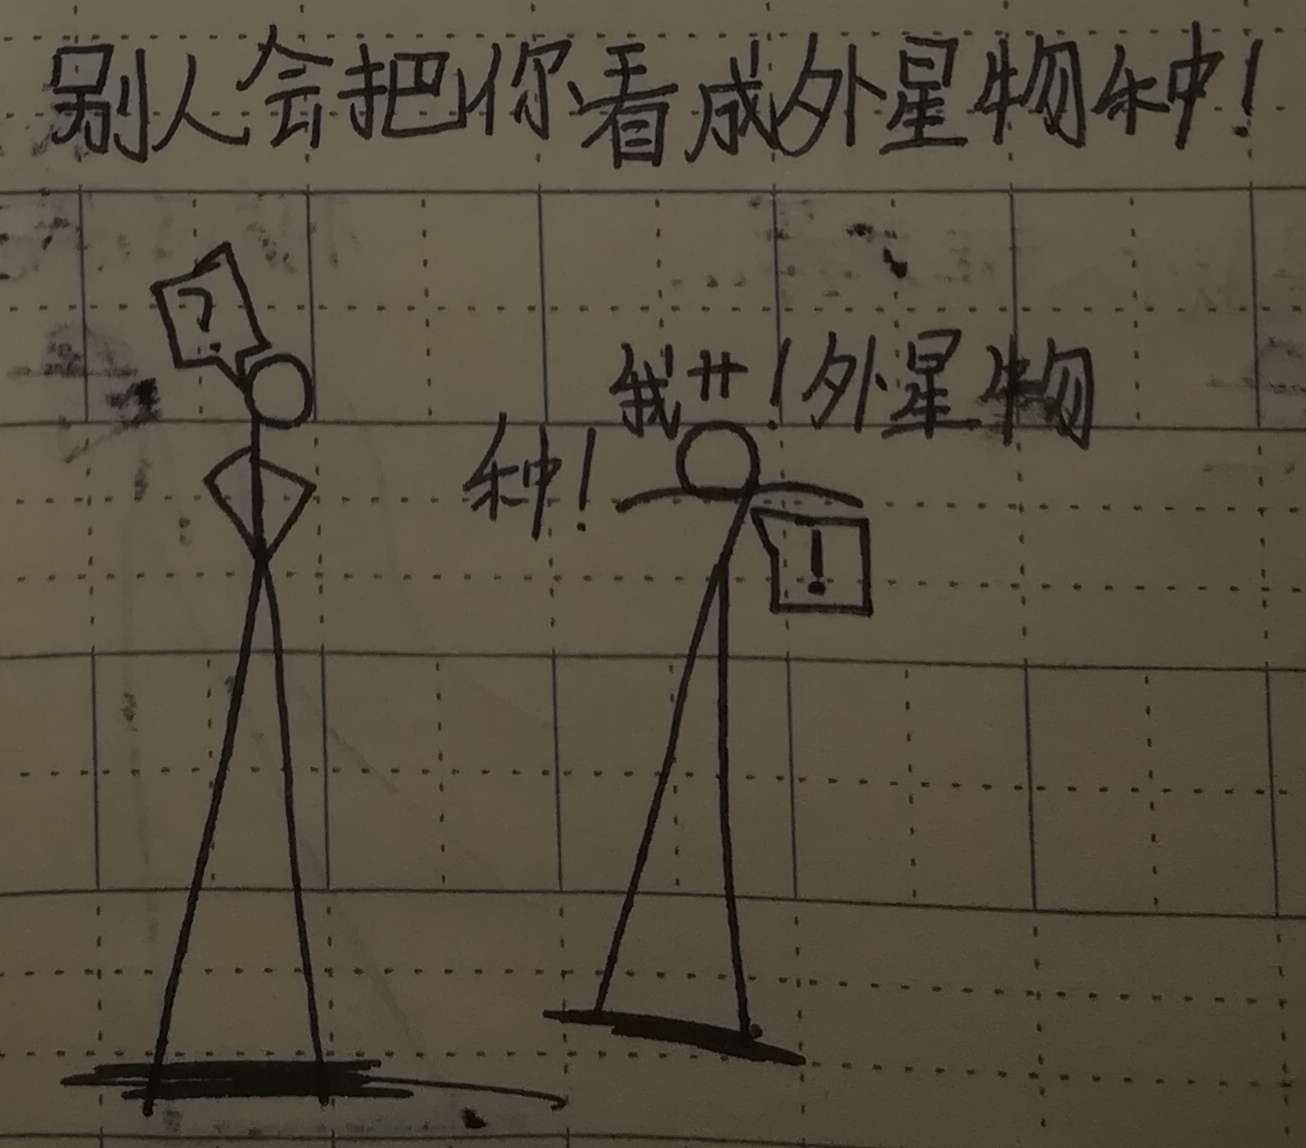 别人会把你看成外星物种!
?
我艹!外星物
种!
!